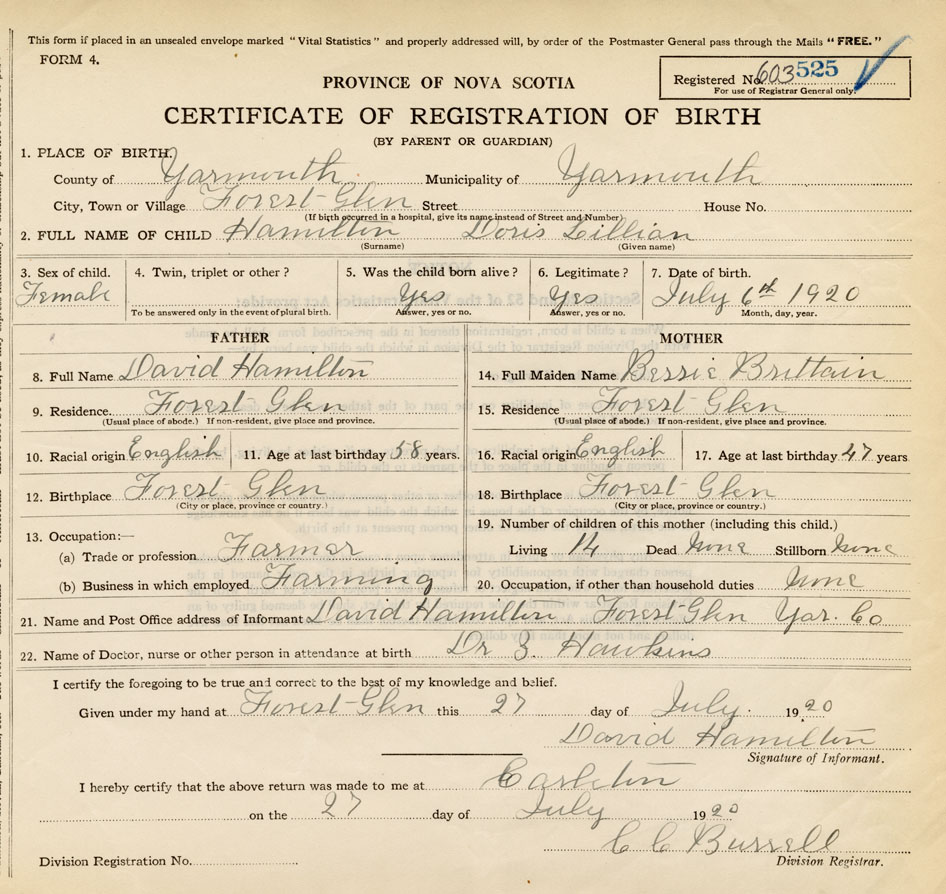 This form if placed in an unsealed envelope marked "Vital Statistics" and properly addressed will, by order of the Postmaster General pass through the Mails "FREE."
FORM 4.
Registered No. 603525
For use of Registrar General only.
PROVINCE OF NOVA SCOTIA
CERTIFICATE OF REGISTRATION OF BIRTH
(BY PARENT OR GUARDIAN)
1. PLACE OF BIRTH.
County of Yarmouth Municipality of Yarmouth
City, Town or Village Forest Glen Street House No.
(If birth occurred in a hospital, give its name instead of Street and Number)
2. FULL NAME OF CHILD Hamilton Doris Lillian
(Surname) (Given name)
3. Sex of child. 4. Twin, triplet or other? 5. Was the child born alive? 6. Legitimate? 7. Date of birth.
Female Yes Yes July 6th 1920
To be answered only in the event of plural birth. Answer, yes or no. Answer, yes or no. Month, day, year.
FATHER MOTHER
8. Full Name David Hamilton 14. Full Maiden Name Bessie Brittain
9. Residence. Forest Glen 15. Residence Forest Glen
(Usual place of abode.) If non-resident, give place and province. (Usual place of abode.) If non-resident, give place and province.
10. Racial origin English 11. Age at last birthday 58 years. 16. Racial origin English 17. Age at last birthday 47 years
12. Birthplace Forest Glen 18. Birthplace Forest Glen
(City or place, province or country.) (City or place, province or country.)
13. Occupation:— 19. Number of children of this mother (including this child.)
(a) Trade or profession Farmer Living 14 Dead None Stillborn None
(b) Business in which employed Farming 20. Occupation, if other than household duties None
21. Name and Post Office address of Informant David Hamilton Forest Glen Yar. Co
22. Name of Doctor, nurse or other person in attendance at birth Dr Z. Hawkins
I certify the foregoing to be true and correct to the best of my knowledge and belief.
Given under my hand at Forest Glen this 27 day of July 1920
David Hamilton
Signature of Informant.
I hereby certify that the above return was made to me at Carleton
on the 27 day of July 1920
C C Burrell
Division Registration No. Division Registrar.